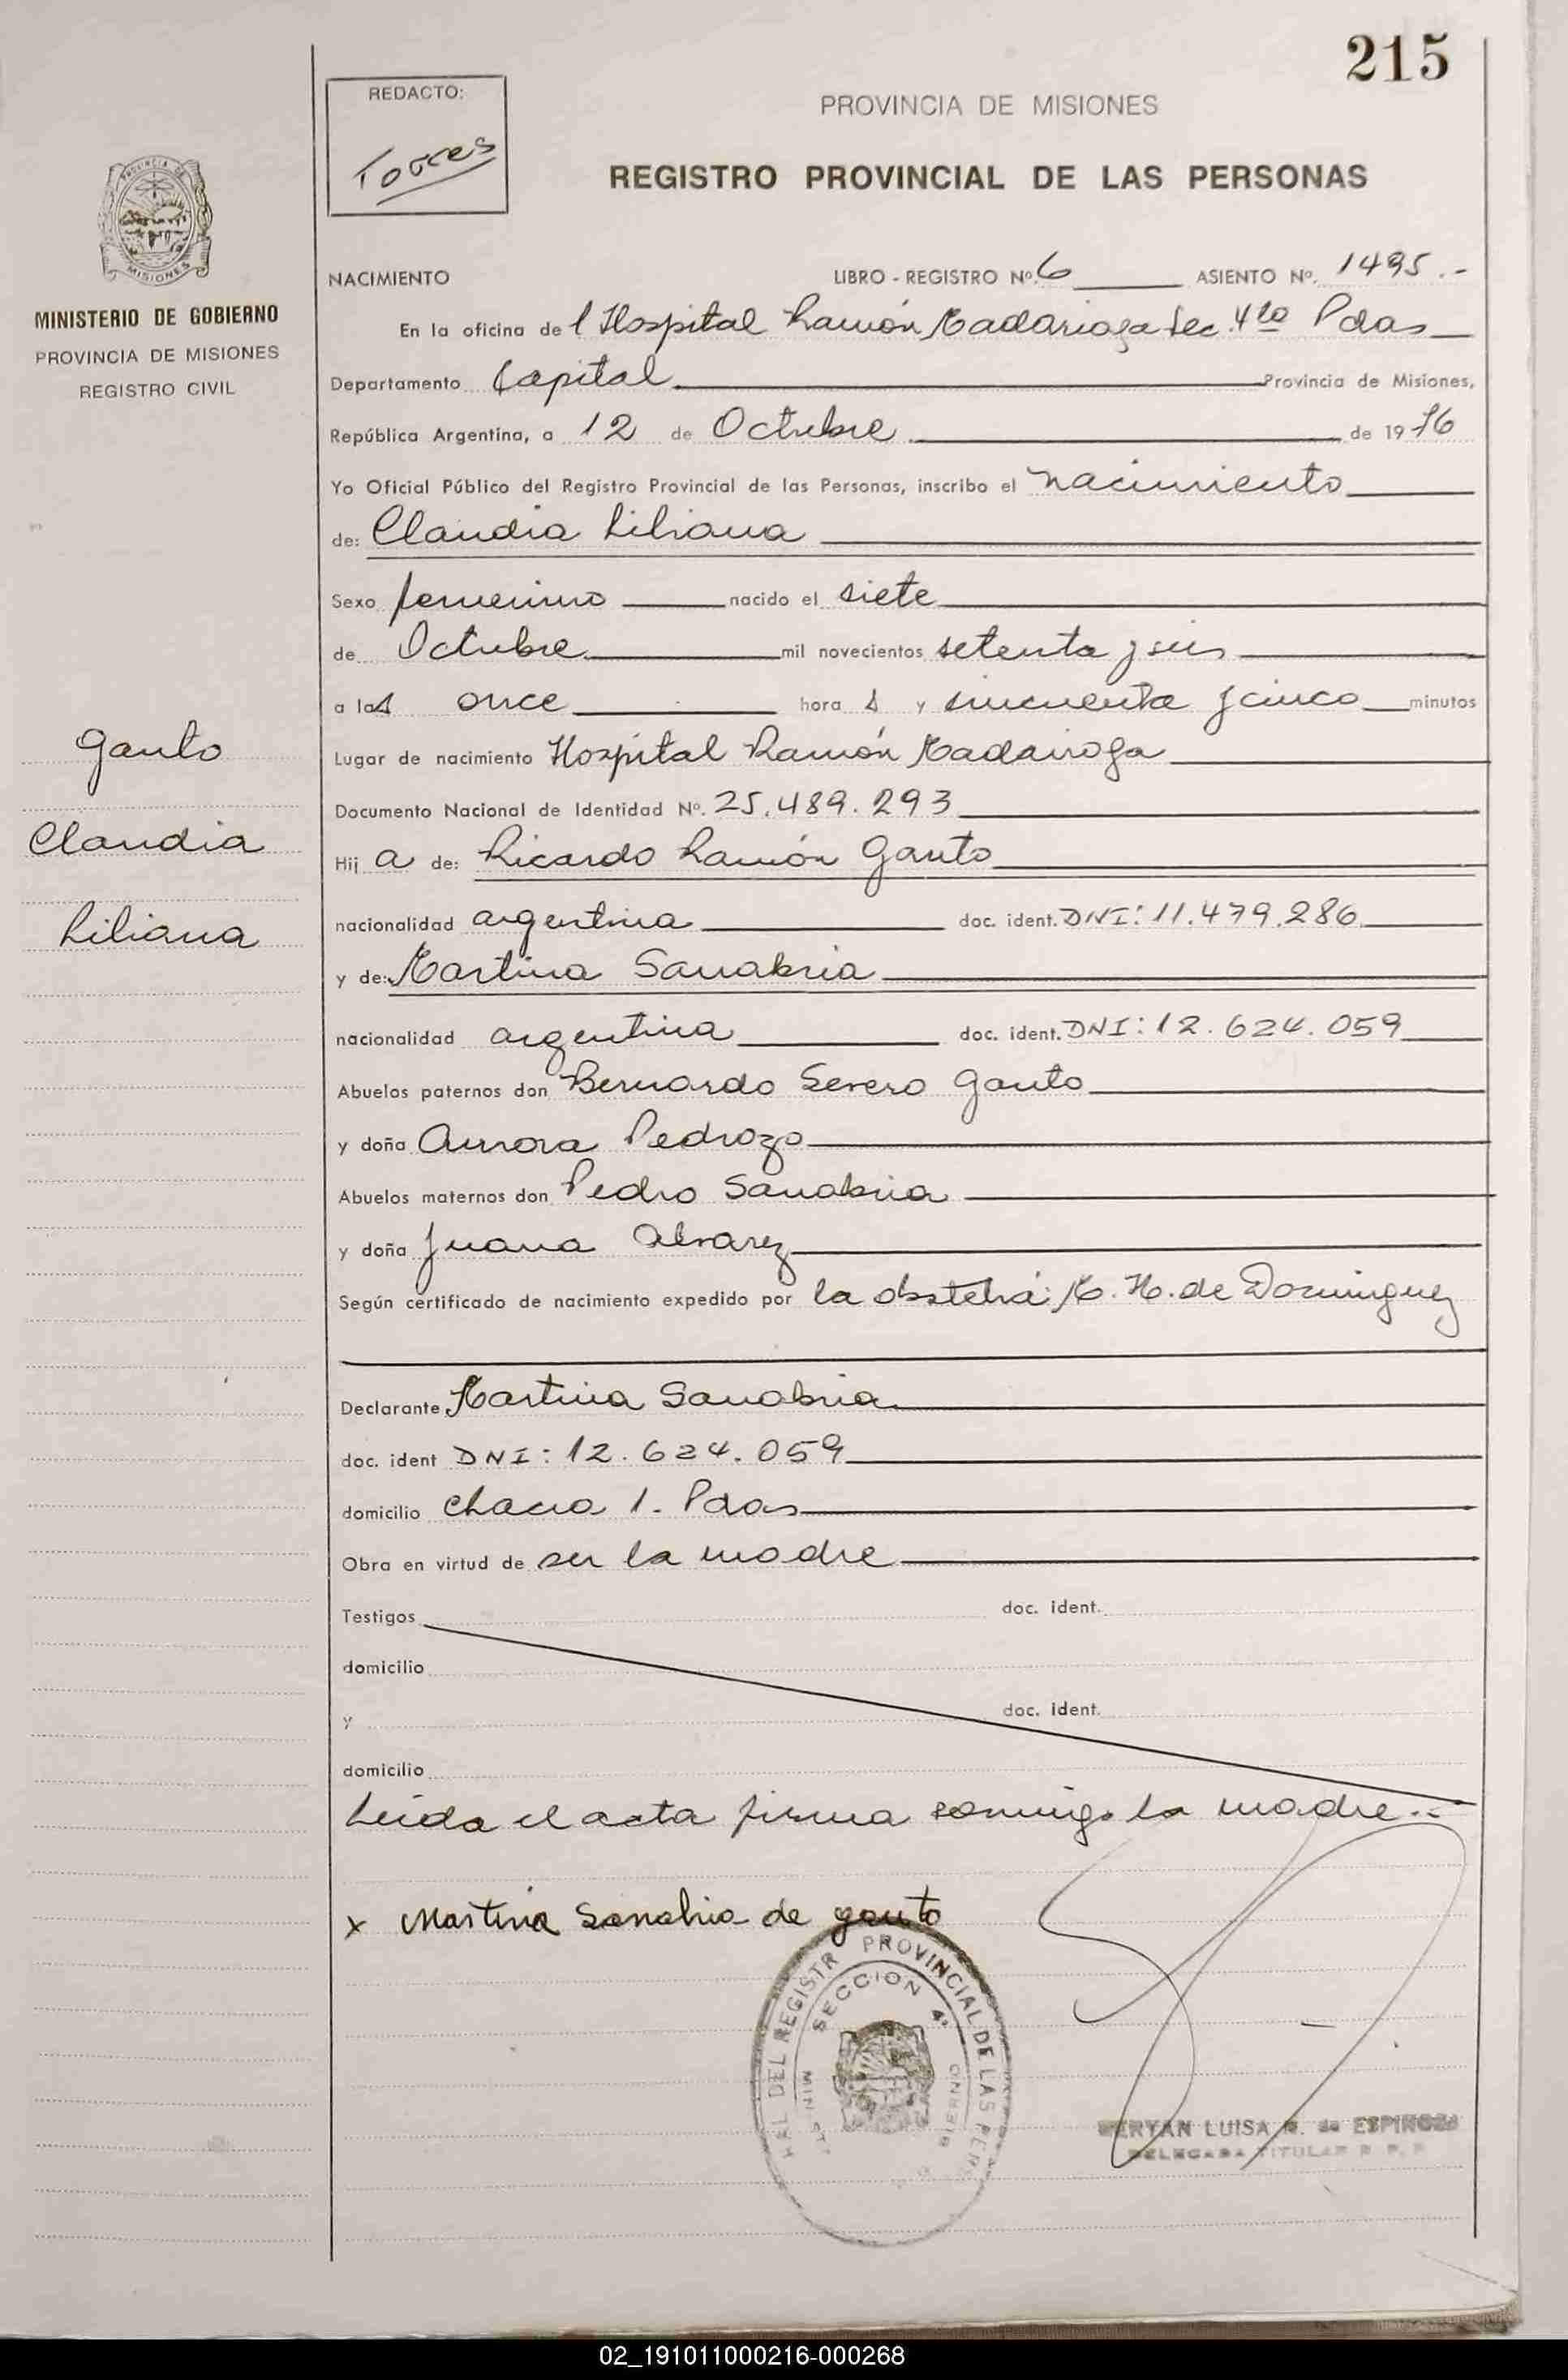 215
REDACTO:
Torres
PROVINCIA DE MISIONES
REGISTRO PROVINCIAL DE LAS PERSONAS
PROVINCIA DE
MISIONES
MINISTERIO DE GOBIERNO
PROVINCIA DE MISIONES
REGISTRO CIVIL
NACIMIENTO LIBRO - REGISTRO Nº 6 ASIENTO Nº. 1495.-
En la oficina de l Hospital Ramón Madariaga Sec. 4ta Pdas
Departamento Capital Provincia de Misiones,
República Argentina, a 12 de Octubre de 1976
Yo Oficial Público del Registro Provincial de las Personas, inscribo el nacimiento
de: Claudia Liliana
Sexo femenino nacido el siete
de Octubre mil novecientos setenta y seis
a las once hora s y cincuenta y cinco minutos
Lugar de nacimiento Hospital Ramón Madariaga
Documento Nacional de Identidad Nº. 25.489.293
Hij a de: Ricardo Ramón Gauto
nacionalidad argentina doc. ident. DNI: 11.479.286
y de: Martina Sanabria
nacionalidad argentina doc. ident. DNI: 12.624.059
Abuelos paternos don Bernardo Severo Gauto
y doña Aurora Pedrozo
Abuelos maternos don Pedro Sanabria
y doña Juana Alvarez
Según certificado de nacimiento expedido por la obstetra: M. H. de Dominguez
Declarante Martina Sanabria
doc. ident DNI: 12.624.059
domicilio Chacra 1. Pdas
Obra en virtud de ser la madre
Testigos doc. ident.
domicilio
y doc. ident.
domicilio
Leida el acta firma conmigo la madre.-
x Martina Sanabria de gauto
Gauto
Claudia
Liliana
DEL REGISTR PROVINCIAL DE LAS PERS
SECCION 4ª
LUISA de ESPINOZA
DELEGADA TITULAR
02_191011000216-000268